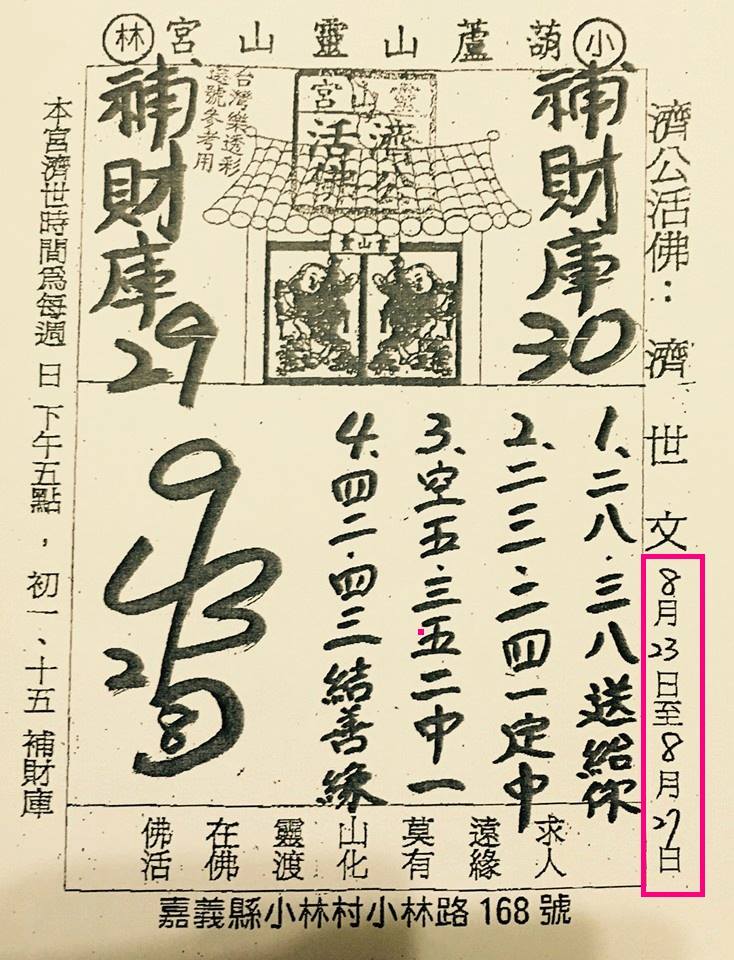 小 葫蘆山靈山宮 林
濟公活佛:濟世文 8月23日至8月27日
補財庫30
靈山宮
濟公
活佛
台灣樂透彩
選號參考用
補財庫29
1、二八.三八送給你
2、二三、二四一定中
3、空五.三五二中一
4、四二.四三結善緣
求人
遠緣
莫有
山化
靈渡
在佛
佛活
本宮濟世時間為每週日下午五點,初一、十五補財庫
嘉義縣小林村小林路168號